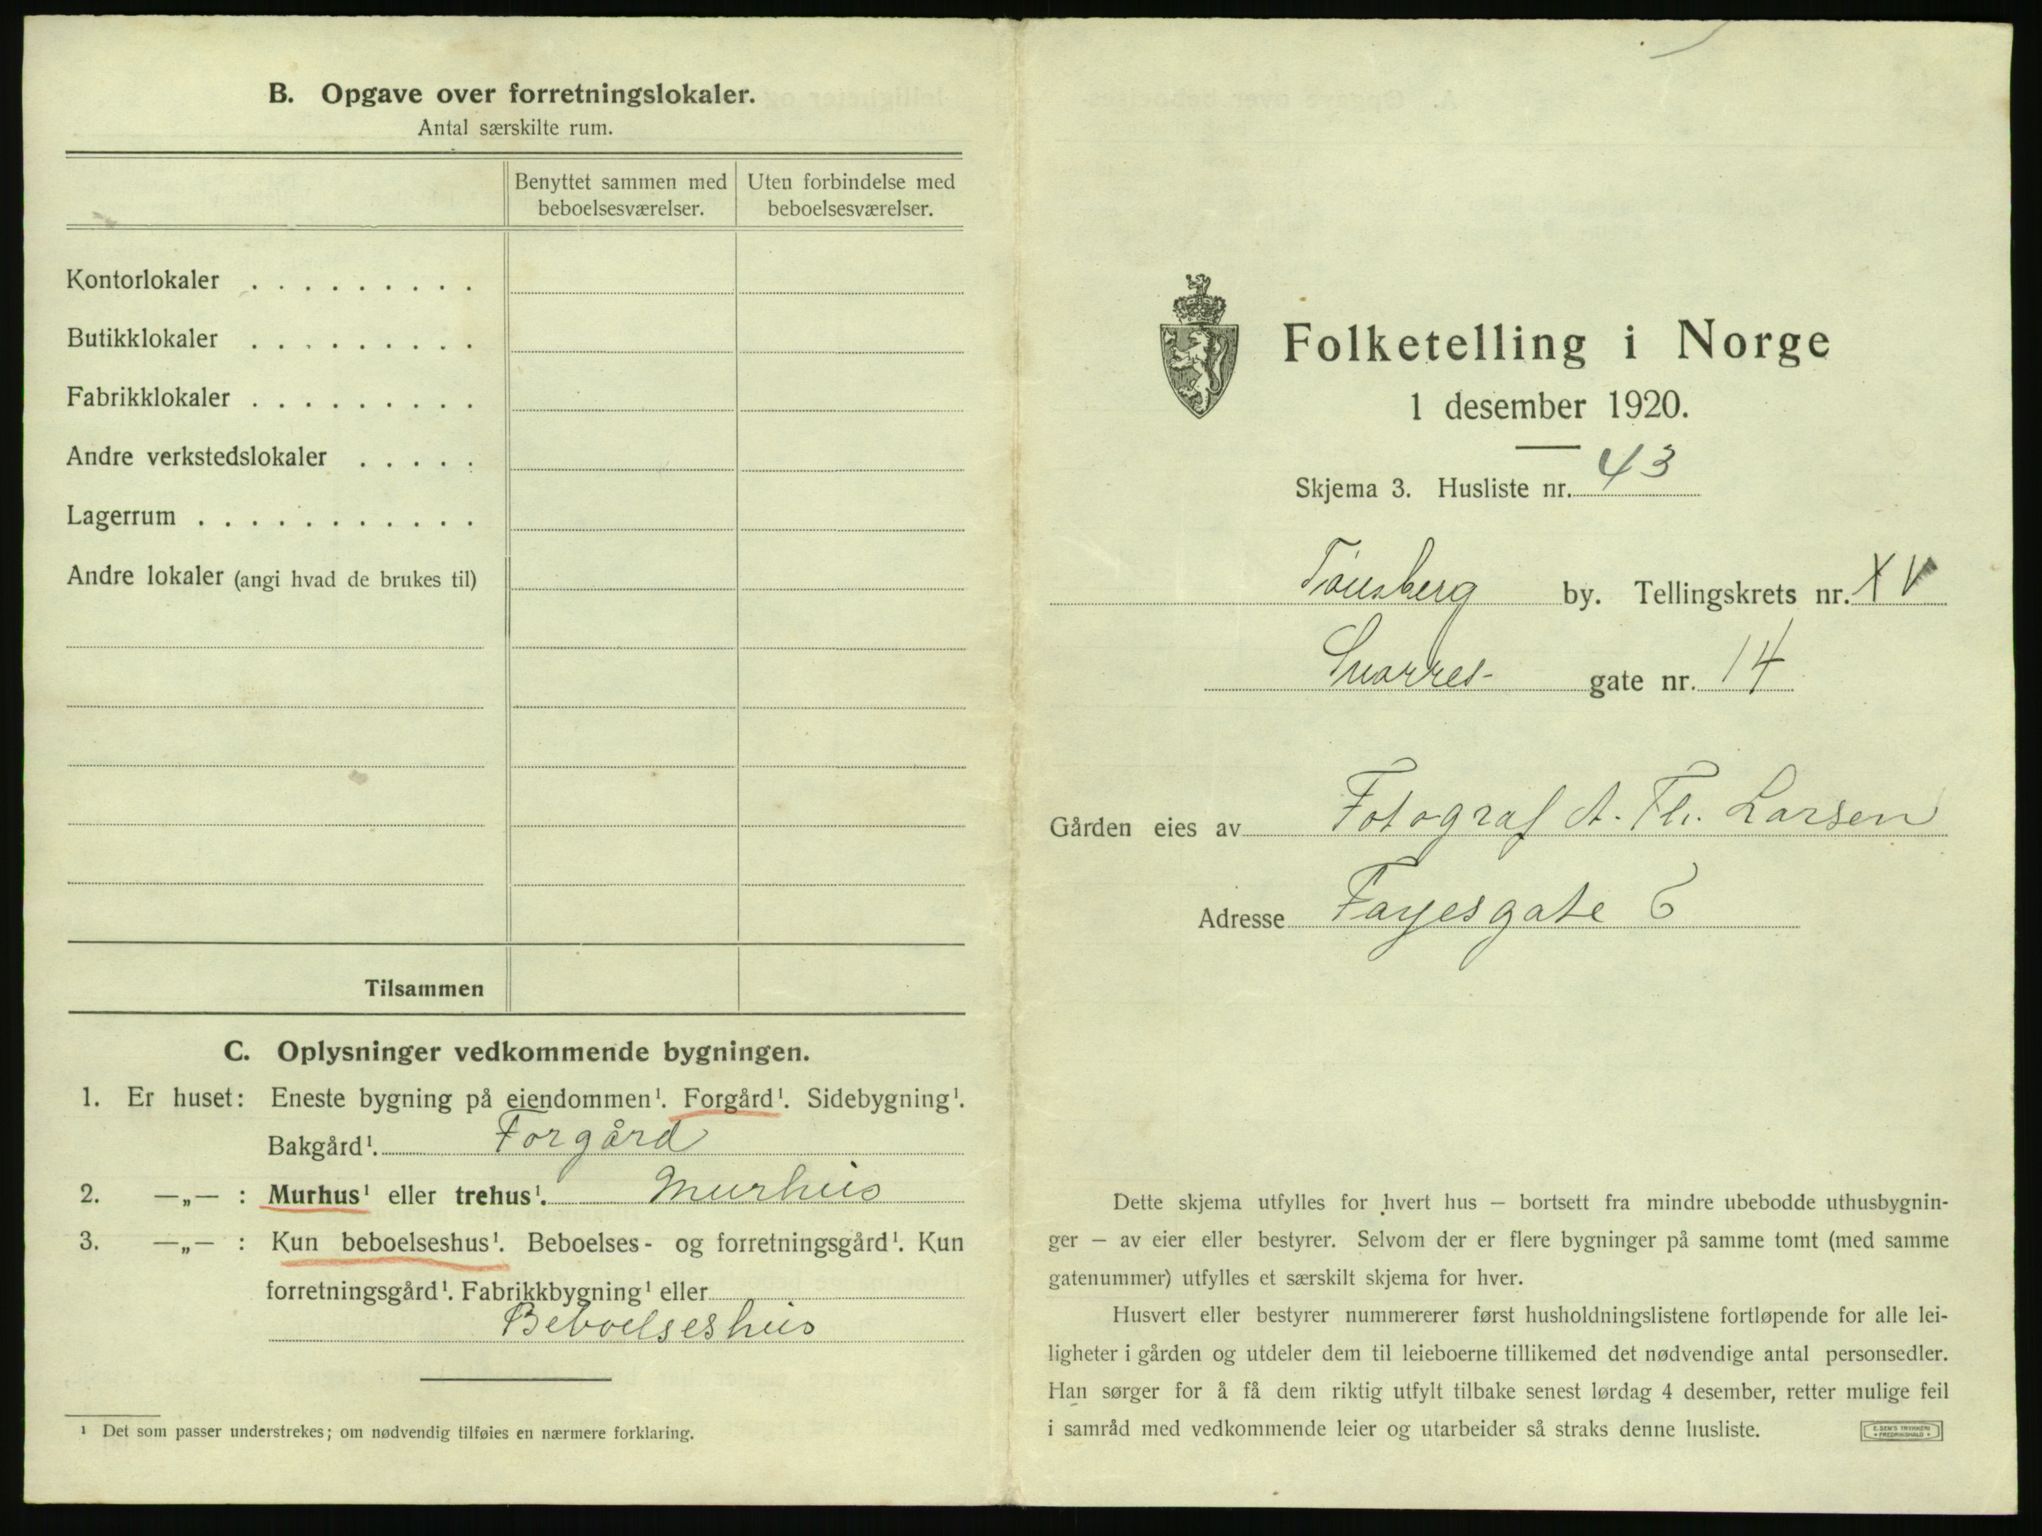 B. Opgave over forretningslokaler.
Antal særskilte rum.
Benyttet sammen med beboelsesværelser.
Uten forbindelse med beboelsesværelser.
Kontorlokaler . . . . . . . . .
Butikklokaler . . . . . . . . .
Fabrikklokaler . . . . . . . . .
Andre verkstedslokaler . . . . .
Lagerrum . . . . . . . . . . .
Andre lokaler (angi hvad de brukes til)
Tilsammen
C. Oplysninger vedkommende bygningen.
1. Er huset: Eneste bygning på eiendommen¹. Forgård¹. Sidebygning¹.
Bakgård¹. Forgård
2. —„— : Murhus¹ eller trehus¹. Murhus
3. —„— : Kun beboelseshus¹. Beboelses- og forretningsgård¹. Kun
forretningsgård¹. Fabrikkbygning¹ eller
Beboelseshus
¹ Det som passer understrekes; om nødvendig tilføies en nærmere forklaring.
Folketelling i Norge
1 desember 1920.
Skjema 3. Husliste nr. 43
Tönsberg by. Tellingskrets nr. XV
Snorres- gate nr. 14
Gården eies av Fotograf A. Th. Larsen
Adresse Fayesgate 6
Dette skjema utfylles for hvert hus — bortsett fra mindre ubebodde uthusbygnin-
ger — av eier eller bestyrer. Selvom der er flere bygninger på samme tomt (med samme
gatenummer) utfylles et særskilt skjema for hver.
Husvert eller bestyrer nummererer først husholdningslistene fortløpende for alle lei-
ligheter i gården og utdeler dem til leieboerne tillikemed det nødvendige antal personsedler.
Han sørger for å få dem riktig utfylt tilbake senest lørdag 4 desember, retter mulige feil
i samråd med vedkommende leier og utarbeider så straks denne husliste.